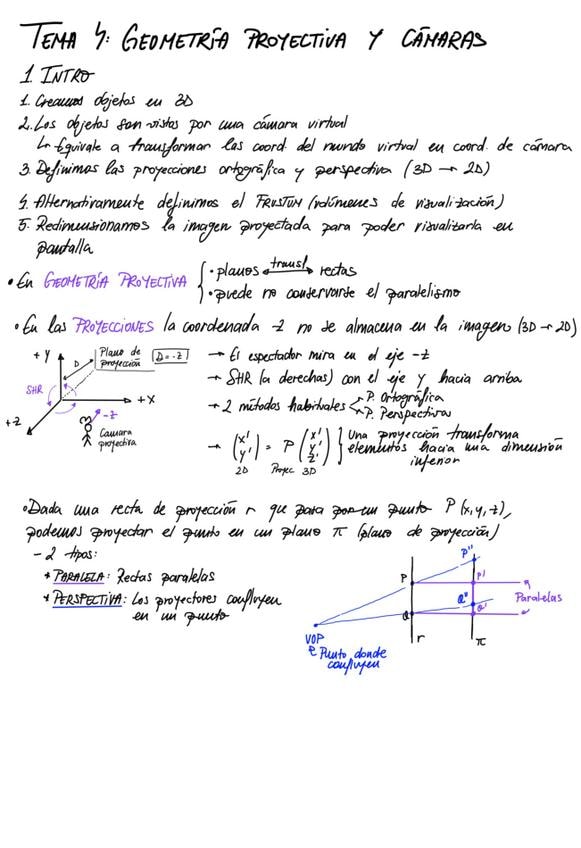 TEMA 4: GEOMETRÍA PROYECTIVA Y CÁMARAS
1. INTRO
1. Creamos objetos en 3D
2. Los objetos son vistos por una cámara virtual
↳ Equivale a transformar las coord del mundo virtual en coord. de cámara
3. Definimos las proyecciones ortográfica y perspectiva (3D → 2D)
4. Alternativamente definimos el FRUSTUM (volúmenes de visualización)
5. Redimensionamos la imagen proyectada para poder visualizarla en
pantalla
• En GEOMETRÍA PROYECTIVA
• planos ←transf→ rectas
• puede no conservarse el paralelismo
• En las PROYECCIONES la coordenada z no se almacena en la imagen (3D → 2D)
+Y
D
Plano de
proyección
D = -z
SHR
+X
+Z
-Z
Camara
proyectiva
→ El espectador mira en el eje -z
→ SHR (a derechas) con el eje y hacia arriba
→ 2 métodos habituales
P. Ortográfica
P. Perspectiva
→ (x' y') = P (x' y' z')
2D Proyec 3D
Una proyección transforma
elementos hacia una dimensión
inferior
• Dada una recta de proyección r que pasa por un punto P(x,y,z),
podemos proyectar el punto en un plano π (plano de proyección)
- 2 tipos:
* PARALELA: Rectas paralelas
* PERSPECTIVA: Los proyectores confluyen
en un punto
P''
P
P'
Q''
Q
Q'
Paralelas
VOP
Punto donde
confluyen
r
π